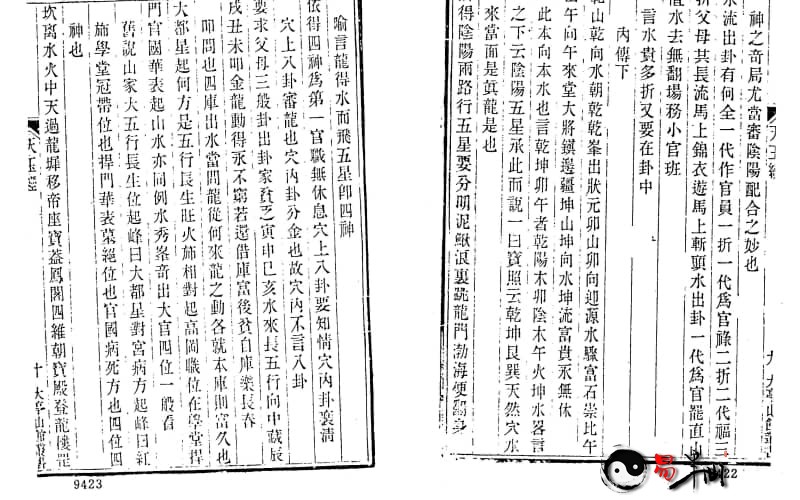 神之奇局尤當審陰陽配合之妙也
水流出卦有何全一代作官員一折一代為官祿二折二代福三
折父母共長流馬上錦衣遊馬上斬頭水出卦一代為官罷直山
直水去無翻場務小官班
言水貴多折又要在卦中
內傳下
乾山乾向水朝乾乾峯出狀元卯山卯向迎源水驟富石崇比午
山午向午來堂大將鎮邊疆坤山坤向水坤流富貴永無休
此本向本水也言乾坤卯午者乾陽木卯陰木午火坤水各言
之下云陰陽五星承此而說一曰寶照云乾坤艮巽天然穴水
來當面是眞龍是也
得陰陽兩路行五星要分明泥鰍浪裏跳龍門渤海便翻身
喻言龍得水而飛五星即四神
依得四神為第一官職無休息穴上八卦要知情穴內卦裝清
穴上八卦審龍也穴內卦分金也故穴內不言八卦
要求父母三般卦出卦家貧乏寅申巳亥水來長五行向中藏辰
戌丑未叩金龍動得永不窮若還借庫富後貧自庫樂長春
叩問也四庫出水當問龍從何來龍之動各就本庫則富久也
大都星起何方是五行長生旺火旆相對起高岡職位在學堂捍
門官國華表起山水亦同例水秀峯奇出大官四位一般看
舊說山家大五行長生位起峰曰大都星對宮病方起峰曰紅
旆學堂冠帶位也捍門華表墓絕位也官國病死方也四位四
神也
坎离水火中天過龍墀移帝座寶蓋鳳閣四維朝寶殿登龍樓罡
天玉經
十
9423